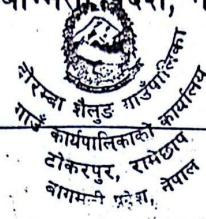 दोरम्बा शैलुङ गाउँपालिका
गाउँ कार्यपालिकाको कार्यालय
टोकरपुर, रामेछाप
बागमती प्रदेश, नेपाल